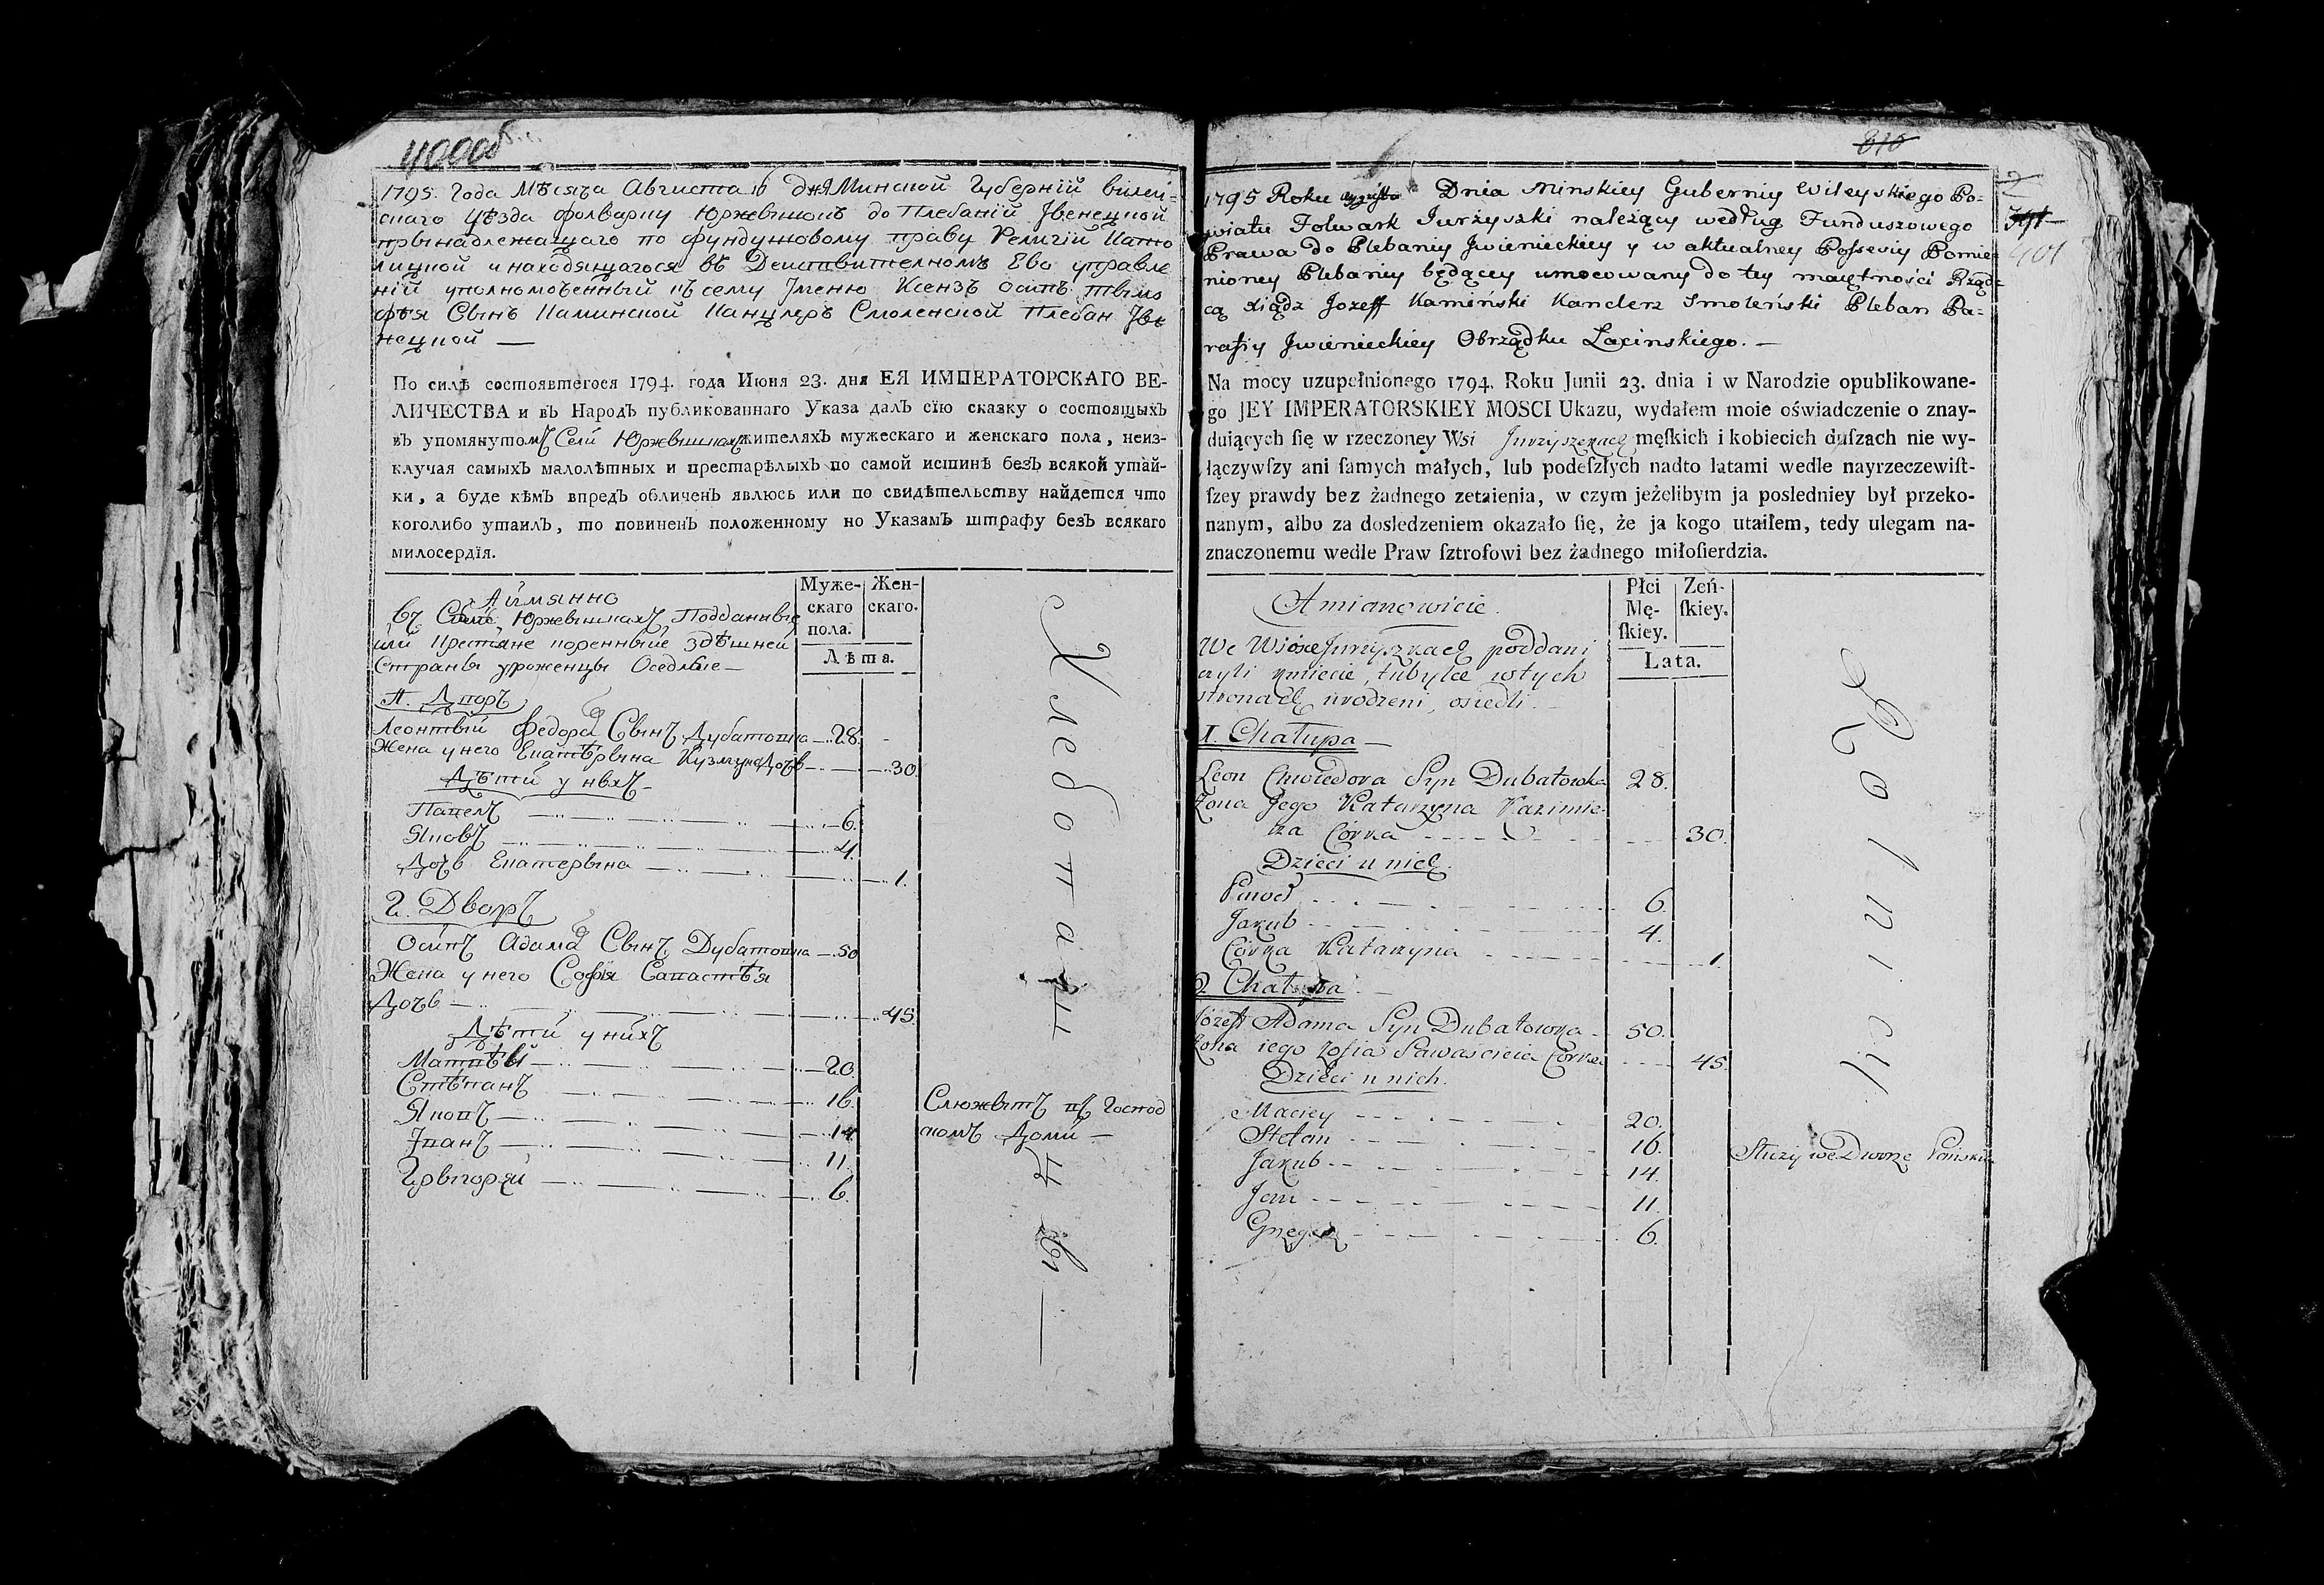 400об
1795. Года Мѣсяца Августа 16 дня Минской Губерніи вилей-
скаго Уѣзда фолварку Юржвишокъ до Плебаніи Івенецкой
прынадлежащаго по фундушовому праву Религіи Като
лицкой и находящагося въ Действителномъ Ево управле
ніи уполномоченный къ сему Іменю Ксензъ Осипъ
Сынъ Каминской Канцлеръ Смоленской Плебан Іве
нецкой —
По силѣ состоявшегося 1794. года Июня 23. дня ЕЯ ИМПЕРАТОРСКАГО ВЕ-
ЛИЧЕСТВА и въ Народъ публикованнаго Указа далъ сїю сказку о состоящыхъ
въ упомянутомъ Селѣ Юржвишкахъ жителяхъ мужескаго и женскаго пола, неиз-
ключая самыхъ малолѣтныхъ и престарѣлыхъ по самой истинѣ безъ всякой утай-
ки, а буде кѣмъ впредъ обличенъ явлюсь или по свидѣтельству найдется что
коголибо утаилъ, то повиненъ положенному по Указамъ штрафу безъ всякаго
милосердїя.
Муже-
скаго
пола.
Жен-
скаго.
Лѣта.
Аймянно
въ Селѣ Юржвишкахъ Подданные
или Крестяне коренные здѣшней
Страны уроженцы Оседлые —
1. Дворъ
Леонтый Федора Сынъ Дубатовка — 28.
Жена у него Екатѣрына Кузмы Дочь — 30.
Дѣти у ныхъ —
Павелъ — 6.
Яковъ — 4.
Дочь Екатерына — 1.
2. Дворъ
Осипъ Адама Сынъ Дубатовка — 50
Жена у него Софія Савастѣя
Дочь — 45.
Дѣти у нихъ
Матвѣй — 20.
Стѣпанъ — 16.
Яковъ — 14
Іванъ — 11.
Грыгорей — 6.
Хлебопашцы —
Служытъ въ Господ
комъ Доми —
810
391
401
1795 Roku Augusta Dnia Minskiey Guberniy Wileyskiego Po-
wiatu Folwark Jurżyszki należący według Funduszowego
Prawa do Plebaniy Jwienieckiey y w aktualney Possesiy Pomie-
nioney Plebaniy będącey umocowany do tey maiętności Rząd-
cą Xiądz Jozeff Kamiński Kanclerz Smoleński Pleban Pa-
rafiy Jwienieckiey Obrządku Łacinskiego. —
Na mocy uzupełnionego 1794. Roku Junii 23. dnia i w Narodzie opublikowane-
go JEY IMPERATORSKIEY MOSCI Ukazu, wydałem moie oświadczenie o znay-
duiących ſię w rzeczoney Wsi Jurzyszkach męſkich i kobiecich duſzach nie wy-
łączywſzy ani ſamych małych, lub podeſzłych nadto latami wedle nayrzeczewiſt-
ſzey prawdy bez żadnego zetaienia, w czym jeżelibym ja posledniey był przeko-
nanym, albo za dosledzeniem okazało ſię, że ja kogo utaiłem, tedy ulegam na-
znaczonemu wedle Praw ſztrofowi bez żadnego miłoſierdzia.
Płci
Mę-
ſkiey.
Zeń-
ſkiey.
Lata.
A mianowicie.
We Wiosce Jurzyszkach poddani
czyli kmiecie, tubylce w tych
stronach urodzeni, osiedli. —
1. Chałupa —
Leon Chwiedora Syn Dubatowka 28.
Żona Jego Katarzyna Kazimie-
rza Córka 30.
Dzieci u nich.
Paweł 6.
Jakub 4.
Córka Katarzyna 1.
2. Chałupa —
Józeff Adama Syn Dubatowka 50.
Żona iego Zofia Sawaścieia Córka 45.
Dzieci u nich.
Maciey 20.
Stefan 16.
Jakub 14.
Jan 11.
Grzegorz 6.
Rolnicy.
Służy we Dworze Pańskim